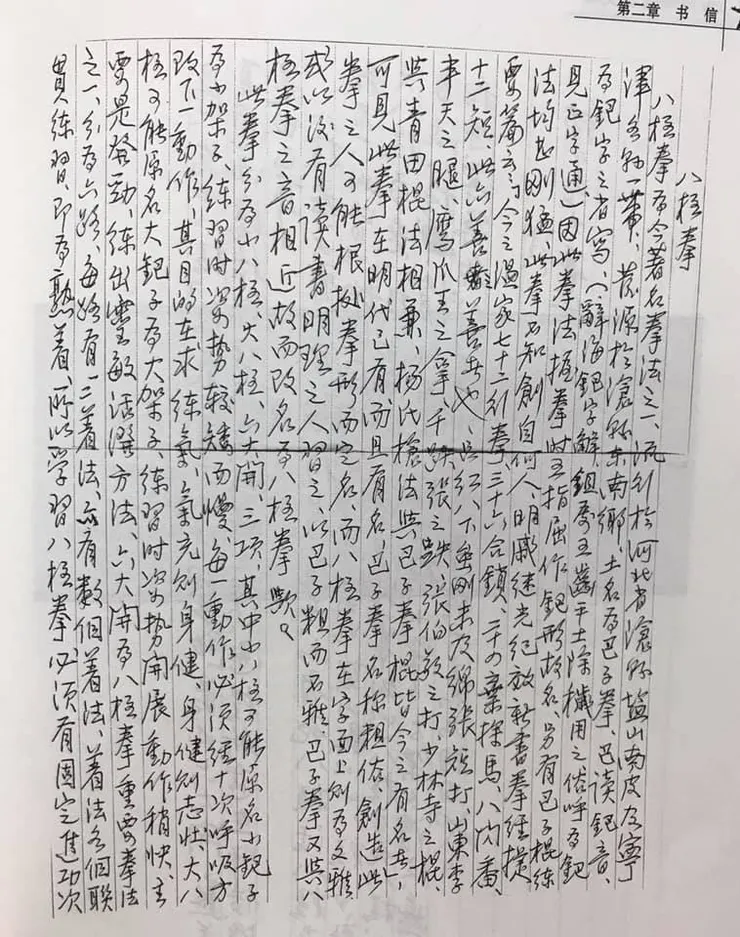 第二章 书信
八極拳
八極拳為今著名拳法之一、流行於河北省滄縣塩山南皮及寧
津各縣一帶、發源於滄縣东南鄉、土名為巴子拳、巴读鈀音、
為鈀字之省寫、(辭海鈀字解、鉏屬五齒平土除穢用之俗呼為鈀
見正字通)因此拳法植拳时五指屈作鈀形故名、另有巴子棍练
法均甚刚猛、此拳不知創自何人、明戚继光纪效新書拳經捷
要篇云、今之温家七十二行拳三十六合鎖、二十四棄探馬、八閃番、
十二短、此亦善之善者也、呂红八下虽刚未及绵張短打、山東李
半天之腿、鷹爪王之拿千跌張之跌、張伯敬之打、少林寺之棍、
與青田棍法相兼、楊氏槍法與巴子拳棍皆今之有名者、
可見此拳在明代已有、而且有名、巴子拳名称粗俗、創造此
拳之人可能根据拳形而定名、而八極拳在字面上則為文雅、
或以後有读書明理之人習之、以巴子粗而不雅、巴子拳又與八
極拳之音相近故而改名為八極拳歟。
此拳分為小八極、大八極、六大開、三项、其中小八極可能原名小鈀子
為小架子、练習时姿势較矮而慢、每一動作必须經十次呼吸方
改下一動作、其目的在求练氣、氣充則身健、身健則志壮、大八
極可能原名大鈀子為大架子、练習时姿势開展動作稍快、主
要是發勁、练出靈敏活潑方法、六大開為八極拳重要拳法
之一、分為六路、每路有一二着法、亦有数個着法、着法各個联
貫练習、即為熟着、所以学習八極拳、必须有固定進功次